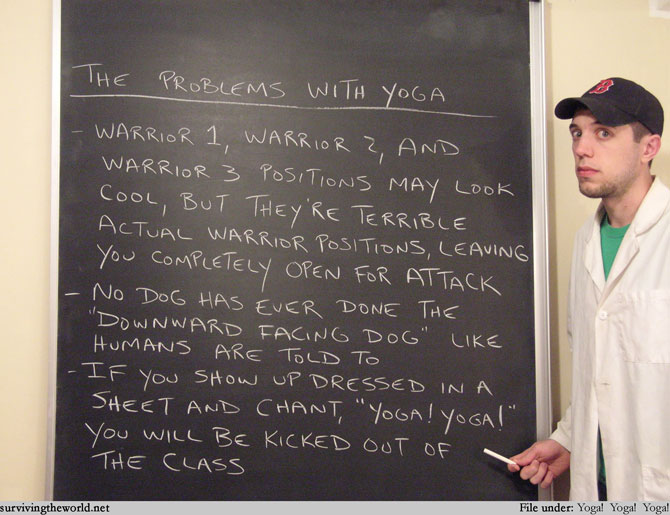 THE PROBLEMS WITH YOGA
- WARRIOR 1, WARRIOR 2, AND
WARRIOR 3 POSITIONS MAY LOOK
COOL, BUT THEY'RE TERRIBLE
ACTUAL WARRIOR POSITIONS, LEAVING
YOU COMPLETELY OPEN FOR ATTACK
- NO DOG HAS EVER DONE THE
"DOWNWARD FACING DOG" LIKE
HUMANS ARE TOLD TO
- IF YOU SHOW UP DRESSED IN A
SHEET AND CHANT, "YOGA! YOGA!"
YOU WILL BE KICKED OUT OF
THE CLASS
B
survivingtheworld.net
File under: Yoga! Yoga! Yoga!